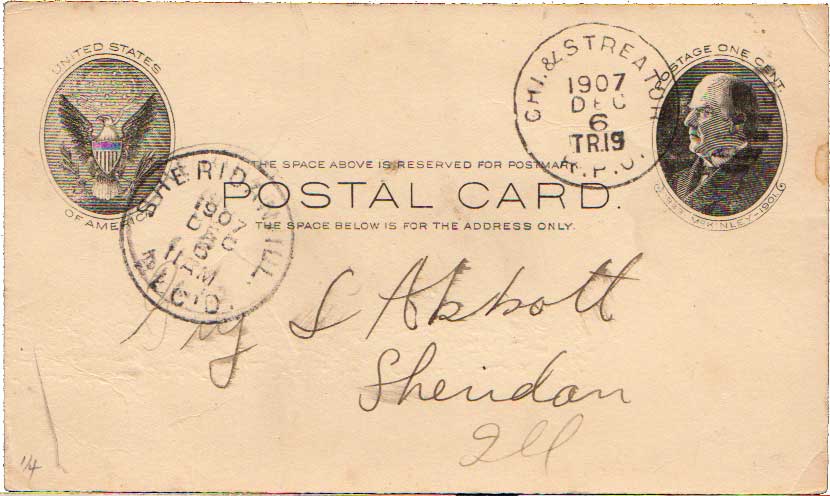 UNITED STATES
OF AMERICA
CHI. & STREATOR
1907
DEC
6
TR.19
R.P.O.
POSTAGE ONE CENT.
1843 McKINLEY-1901
THE SPACE ABOVE IS RESERVED FOR POSTMARK.
POSTAL CARD.
THE SPACE BELOW IS FOR THE ADDRESS ONLY.
SHERIDAN, ILL.
1907
DEC
6
11 AM
REC'D.
Guy S Abbott
Sheridan
Ill
1/4